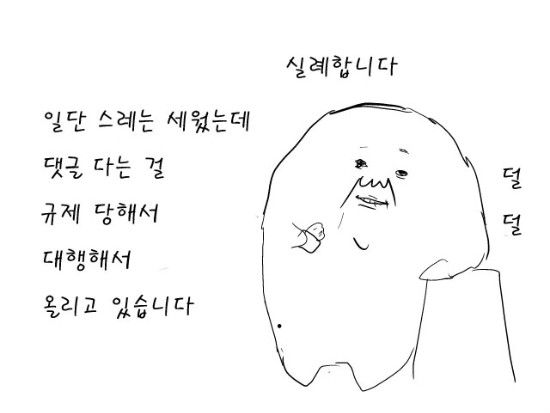 실례합니다
일단 스레는 세웠는데
댓글 다는 걸
규제 당해서
대행해서
올리고 있습니다
덜
덜